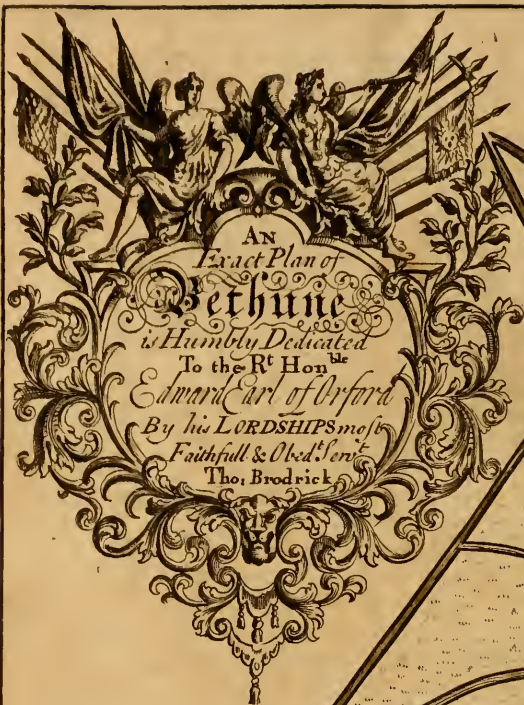 AN
Exact Plan of
Bethune
is Humbly Dedicated
To the Rt Honble
Edward Earl of Orford
By his LORDSHIPS most
Faithfull & Obedt. Servt.
Tho: Brodrick